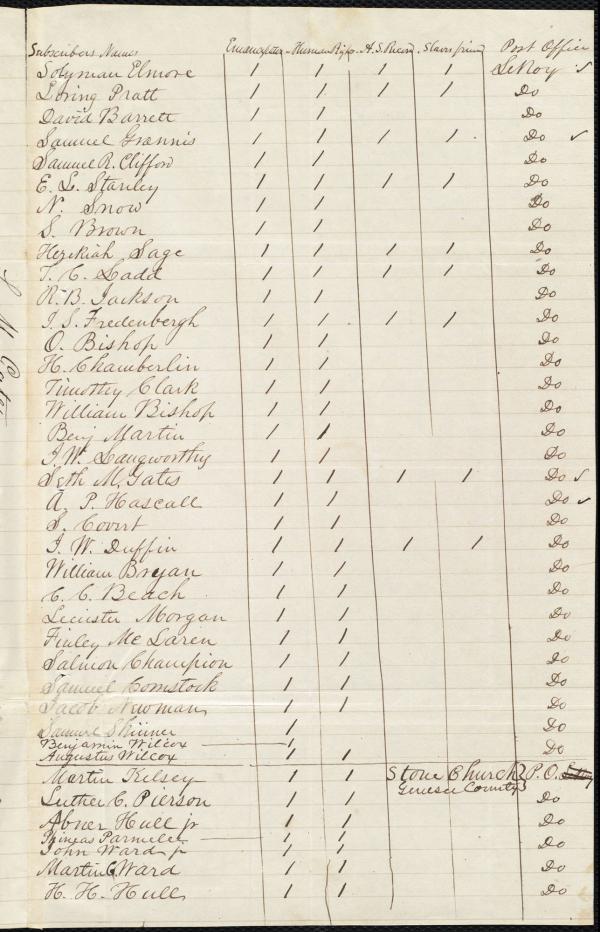 Subscribers Names Emancipator Human Rights A. S. Record Slaves friend Post Office
Solyman Elmore / / / / LeRoy
Loring Pratt / / / / Do
David Barrett / / Do
Samuel Grannis / / / / Do ✓
Samuel R. Clifford / / Do
E. L. Stanley / / / / Do
N. Snow / / Do
S. Brown / / Do
Hezekiah Sage / / / / Do
T. C. Ladd / / / / Do
R. B. Jackson / / Do
I. S. Fredenbergh / / / / Do
O. Bishop / / Do
H. Chamberlin / / Do
Timothy Clark / / Do
William Bishop / / Do
Benj Martin / / Do
J. W. Langworthy / / Do
Seth M. Gates / / / / Do ✓
A. P. Hascall / / Do ✓
S. Covert / / Do
J. W. Duffin / / / / Do
William Bryan / / Do
C. C. Beach / / Do
Leicester Morgan / / Do
Finley McLaren / / Do
Salmon Champion / / Do
Samuel Comstock / / Do
Jacob Newman / / Do
Samuel Skinner / Do
Benjamin Wilcox /
Augustus Wilcox / / Do
Martin Kelsey / / Stone Church P. O.
Genesee County
Luther C. Pierson / / Do
Abner Hull jr / / Do
Phineas Parmelee / /
John Ward jr / / Do
Martin C Ward / / Do
H. H. Hull / / Do